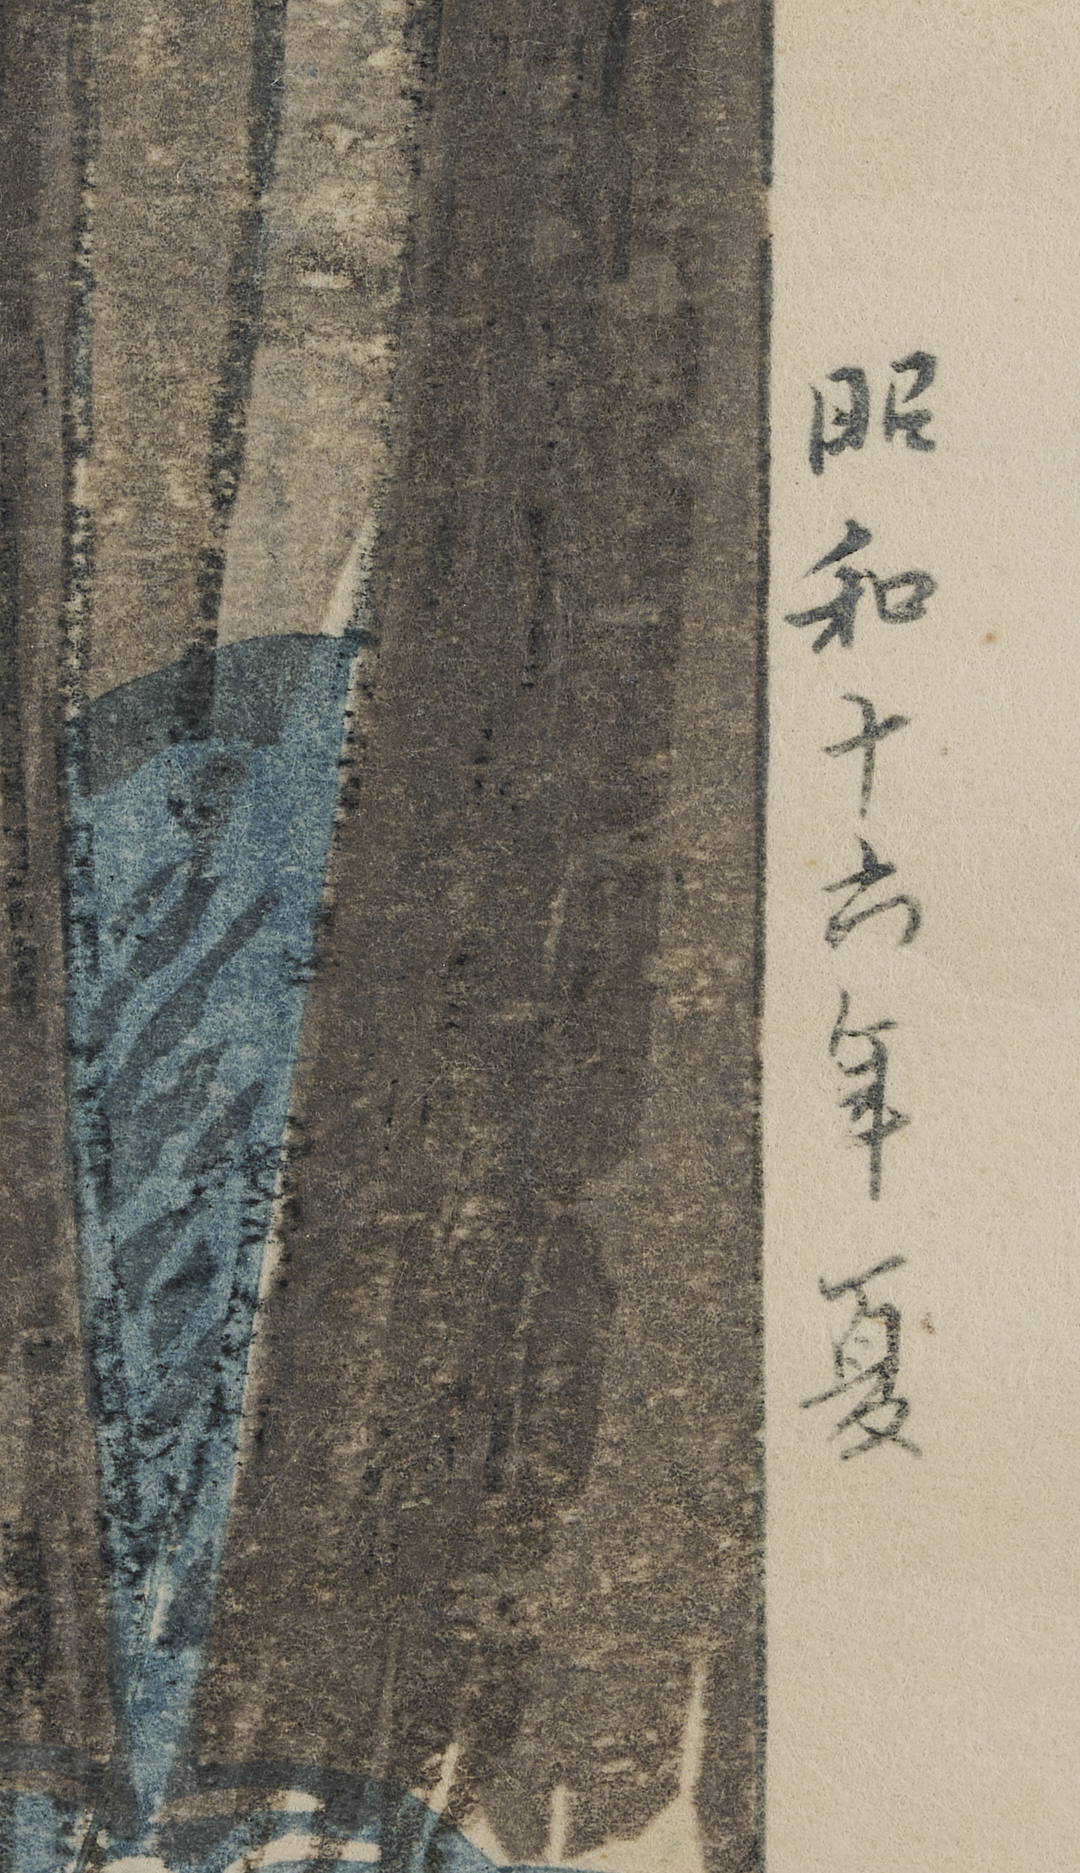 昭和十六年夏